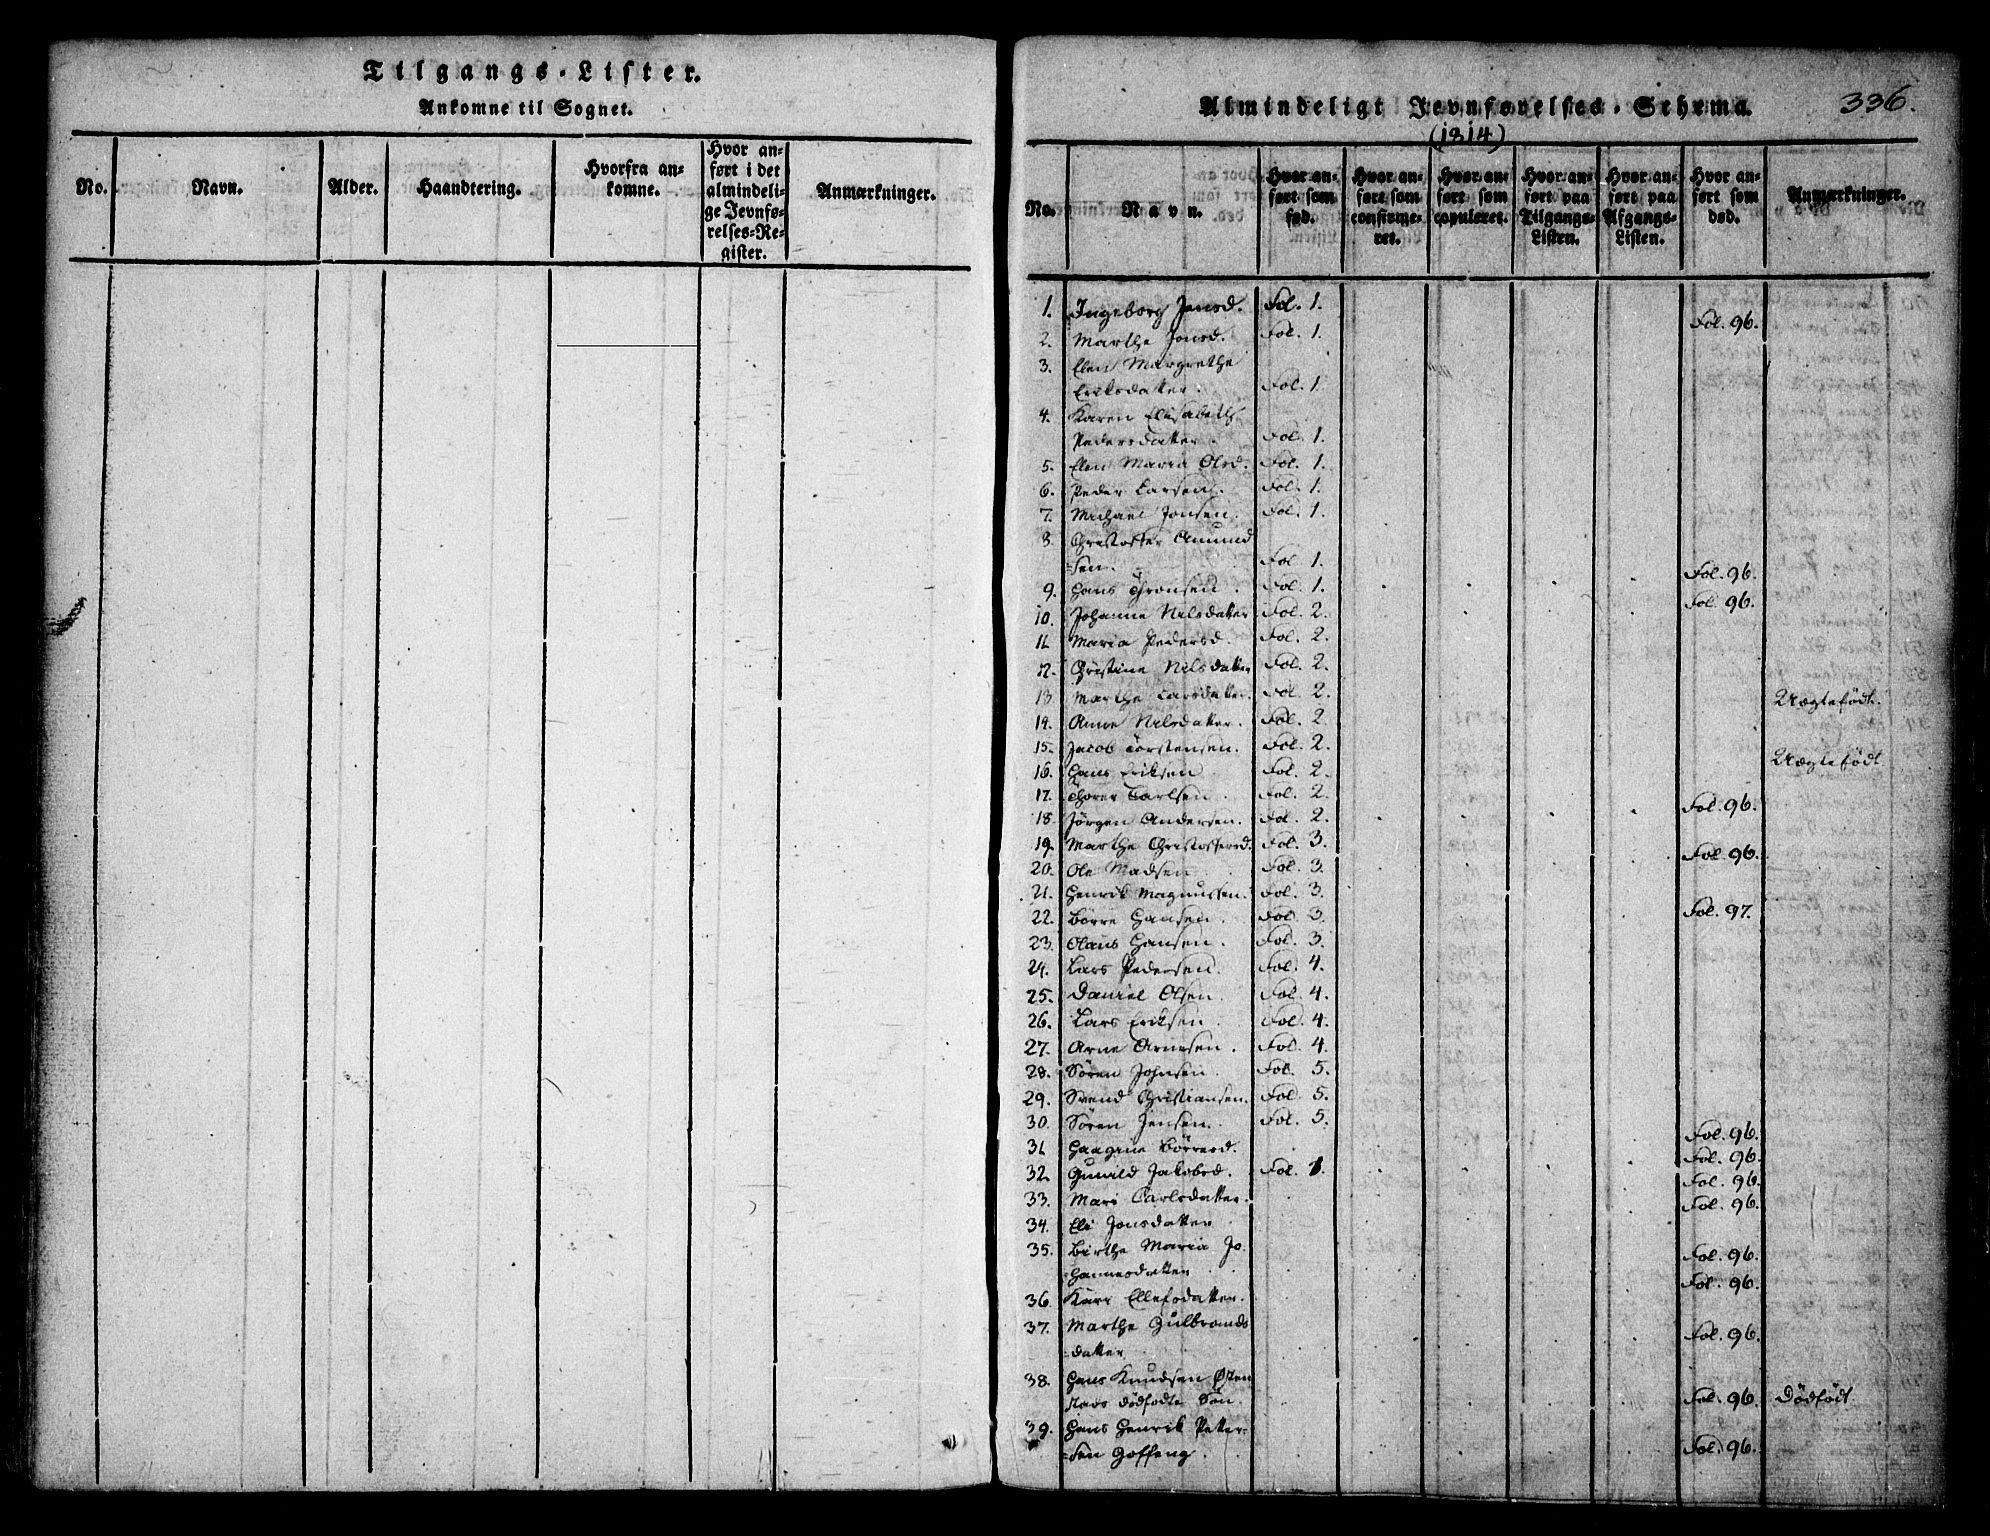 Tilgangs-Lister.
Ankomne til Sognet.
No. Navn. Alder. Haandtering. Hvorfra ankomne. Hvor anført i det almindelige Jevnførelses-Register. Anmærkninger.
Almindeligt Jevnførelses-Schema. 336.
(1814)
No. Navn. Hvor anført som fød. Hvor anført som confirmeret. Hvor anført som copuleret. Hvor anført paa Tilgangs-Listen. Hvor anført paa Afgangs-Listen. Hvor anført som død. Anmærkninger.
1. Ingeborg Jensd. Fol. 1.
Fol. 96.
2. Marthe Jonsd. Fol. 1.
3. Elen Margrethe
Eriksdatter. Fol. 1
4. Karen Elisabeth
Pedersdatter. Fol. 1.
5. Elen Maria Olsd. Fol. 1.
6. Peder Larsen. Fol. 1.
7. Michael Jonsen. Fol. 1.
8. Christoffer Amund
=sen. Fol. 1.
Fol. 96.
9. Hans Thronsen. Fol. 1.
Fol. 96.
10. Johanne Nilsdatter Fol. 2.
11. Maria Pedersd. Fol. 2.
12. Christine Nilsdatter Fol. 2.
13 Marthe Larsdatter. Fol. 2. Uægtefödt.
14. Anne Nilsdatter. Fol. 2.
15. Jacob Torstensen. Fol. 2.
Uægtefödt
16. Hans Eriksen Fol. 2.
17. Thorer Carlsen. Fol. 2.
Fol. 96.
18. Jörgen Andersen. Fol. 2.
19. Marthe Christoffersd. Fol. 3.
Fol. 96.
20. Ole Madsen Fol. 3.
21. Henrik Magnussen. Fol. 3.
22. Börre Hansen. Fol. 3.
Fol. 97.
23. Olaus Hansen. Fol. 3.
24. Lars Pedersen. Fol. 4.
25. Daniel Olsen. Fol. 4.
26. Lars Eriksen. Fol. 4.
27. Arne Arnesen. Fol. 4.
28. Sören Johnsen. Fol. 5.
29. Svend Christiansen. Fol. 5.
30. Sören Jensen. Fol. 5.
Fol. 96.
31 Haagine Börresd.
Fol. 96.
32. Gunild Jakobsd. Fol. 1.
Fol. 96.
33. Mari Carlsdatter.
Fol. 96.
34. Eli Jonsdatter
35. Birthe Maria Jo
Fol. 96.
=hannesdatter
Fol. 96.
36. Kari Ellefsdatter.
37. Marthe Gulbrands
Fol. 96.
=datter
38. Hans Knudsen
dödfödte Sön. Fol. 96. Dödfödt
39. Hans Henrik Petter=
=sen Hoffeng. Fol. 96.